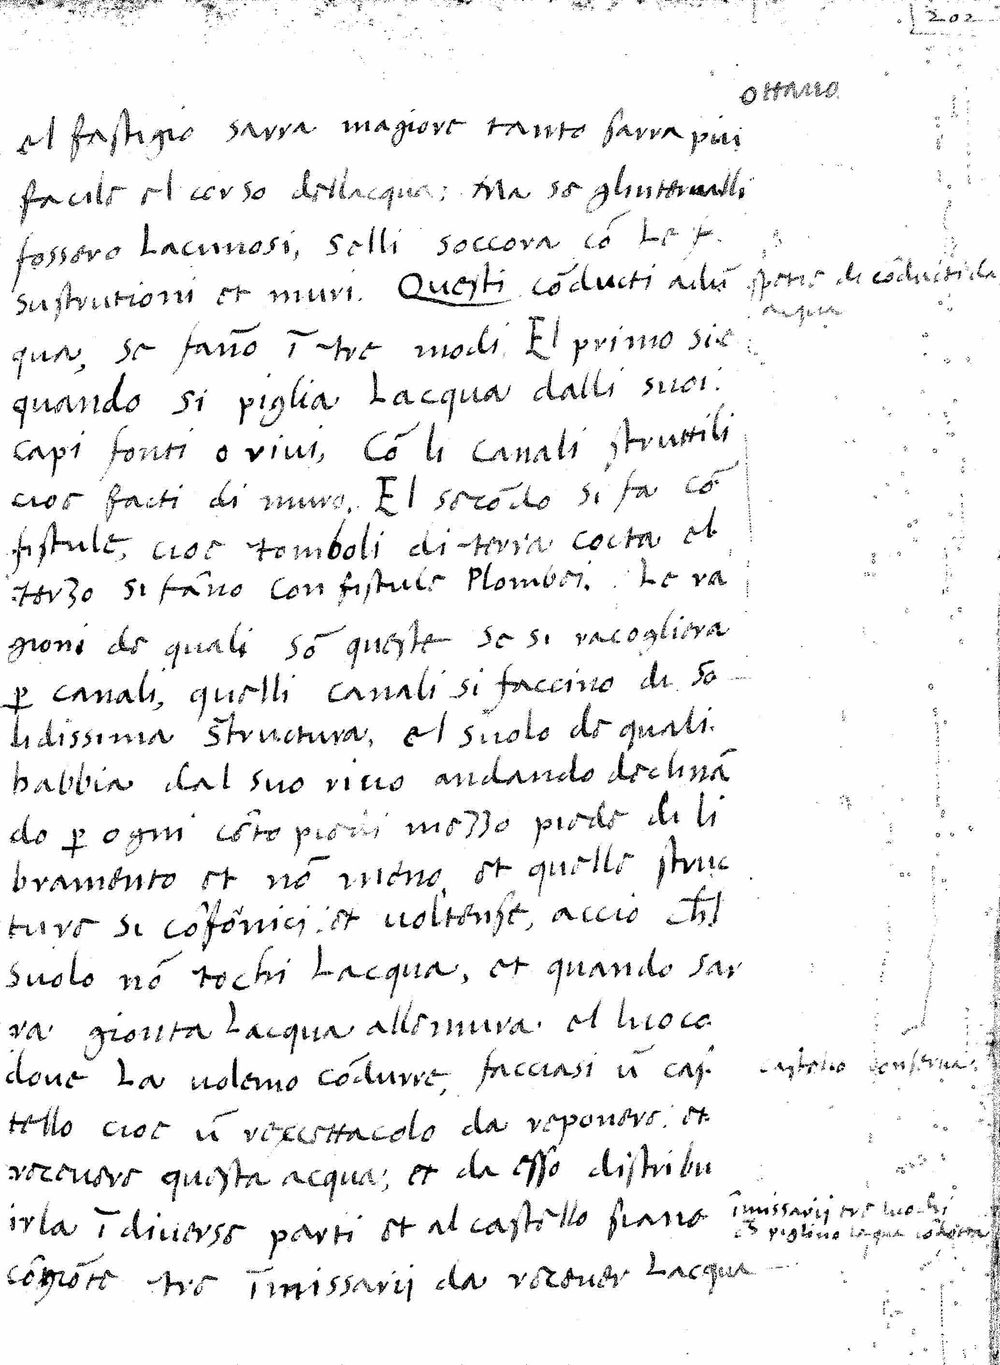 202
ottauo
el fastigio sarra magiore tanto sarra piu
facile el corso dellacqua: Ma se glinterualli
fossero Lacunosi, selli soccora cō Le
sustrutioni et muri. Questi cōducti adū
spetie di cōducti da
acqua
qua, se fan̄o ī tre modi. El primo sie
quando si piglia Lacqua dalli suoi
capi fonti o riui, Cō li canali struttili
cioe facti di muro, El secōdo si fa cō
fistule, cioe tomboli di terra cocta el
terzo si fāno con fistule Plombei. Le ra
gioni de quali sō queste se si racogliera
ꝑ canali, quelli canali si faccino di so
lidissima structura, el suolo de quali
habbia dal suo riuo andando declinā
do ꝑ ogni cēto piedi mezzo piede di li
bramento et nō meno, et quelle struc
ture si cōfōrnici et uoltense, accio chl
suolo nō tochi Lacqua, et quando sar
ra gionta Lacqua alle mura. el luoco
doue La uolemo cōdurre, facciasi ū cas
castello conserua
tello cioe ū receettacolo da reponere et
receuere questa acqua; et da esso distribu
irla ī diuerse parti et al castello siano
īmissarij tre luochi
cħ piglino lacqua cōdotta
cōgiōte tre īmissarij da receuer Lacqua